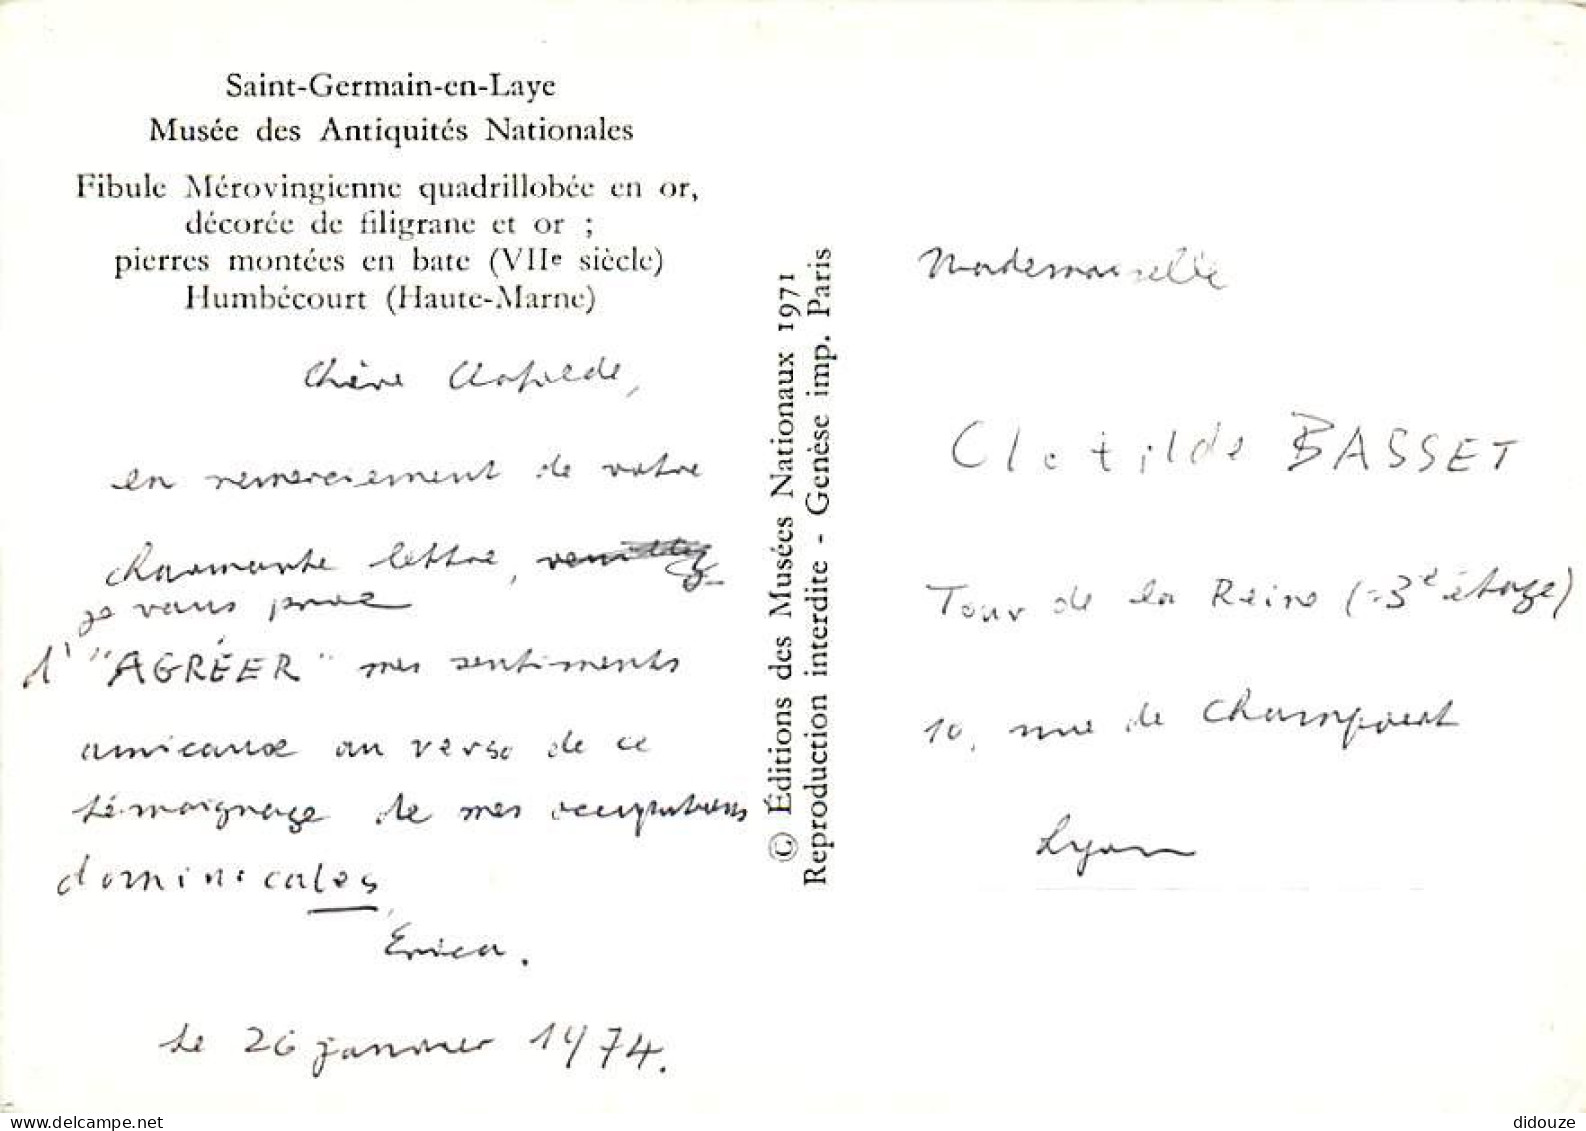 Saint-Germain-en-Laye
Musée des Antiquités Nationales
Fibule Mérovingienne quadrillobée en or,
décorée de filigrane et or ;
pierres montées en bate (VIIe siècle)
Humbécourt (Haute-Marne)
Chère Clotilde,
en remerciement de votre
charmante lettre, veuillez
je vous prie
d' "AGRÉER" mes sentiments
amicaux au verso de ce
témoignage de mes occupations
dominicales,
Erica.
Le 26 janvier 1974.
© Éditions des Musées Nationaux 1971
Reproduction interdite - Genèse imp. Paris
Mademoiselle
Clotilde BASSET
Tour de la Reine (=3e étage)
10, rue de Champvert
Lyon
didouze